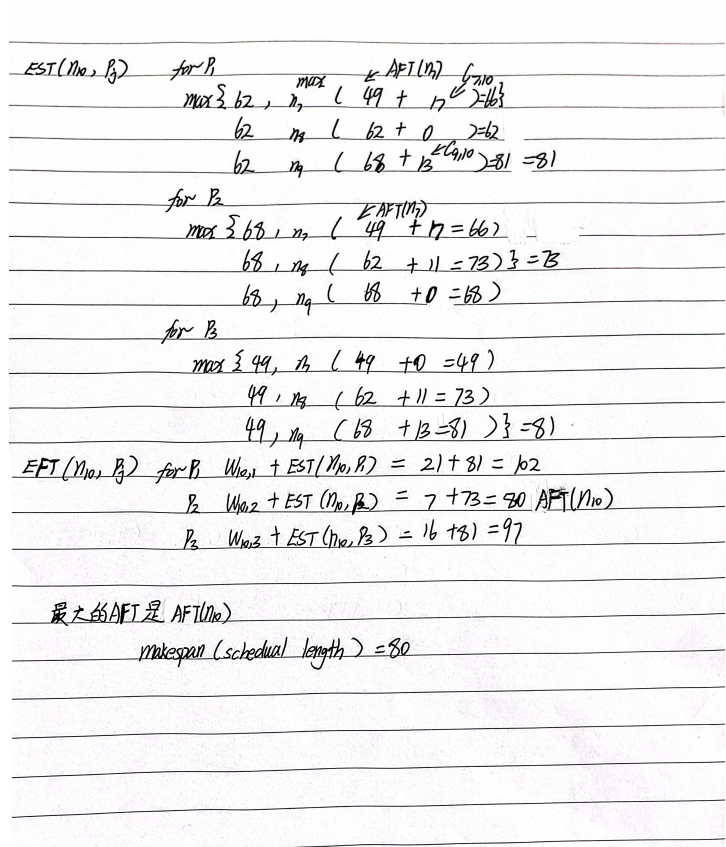 EST(n10, Pj) for P1 ↙ AFT(n7) C7,10
max{ 62, n7 max ( 49 + 17 )=66}
62 n8 ( 62 + 0 )=62
62 n9 ( 68 + 13 ↙C9,10 )=81 =81
for P2 ↙AFT(n7)
max{68, n7 ( 49 + 17 = 66)
68, n8 ( 62 + 11 = 73)} = 73
68, n9 ( 68 + 0 = 68)
for P3
max{49, n7 ( 49 + 0 = 49)
49, n8 ( 62 + 11 = 73)
49, n9 ( 68 + 13 = 81 )} = 81
EFT(n10, Pj) for P1 W10,1 + EST(n10, P1) = 21 + 81 = 102
P2 W10,2 + EST(n10, P2) = 7 + 73 = 80 AFT(n10)
P3 W10,3 + EST(n10, P3) = 16 + 81 = 97
最大的AFT是 AFT(n10)
makespan (schedual length) = 80